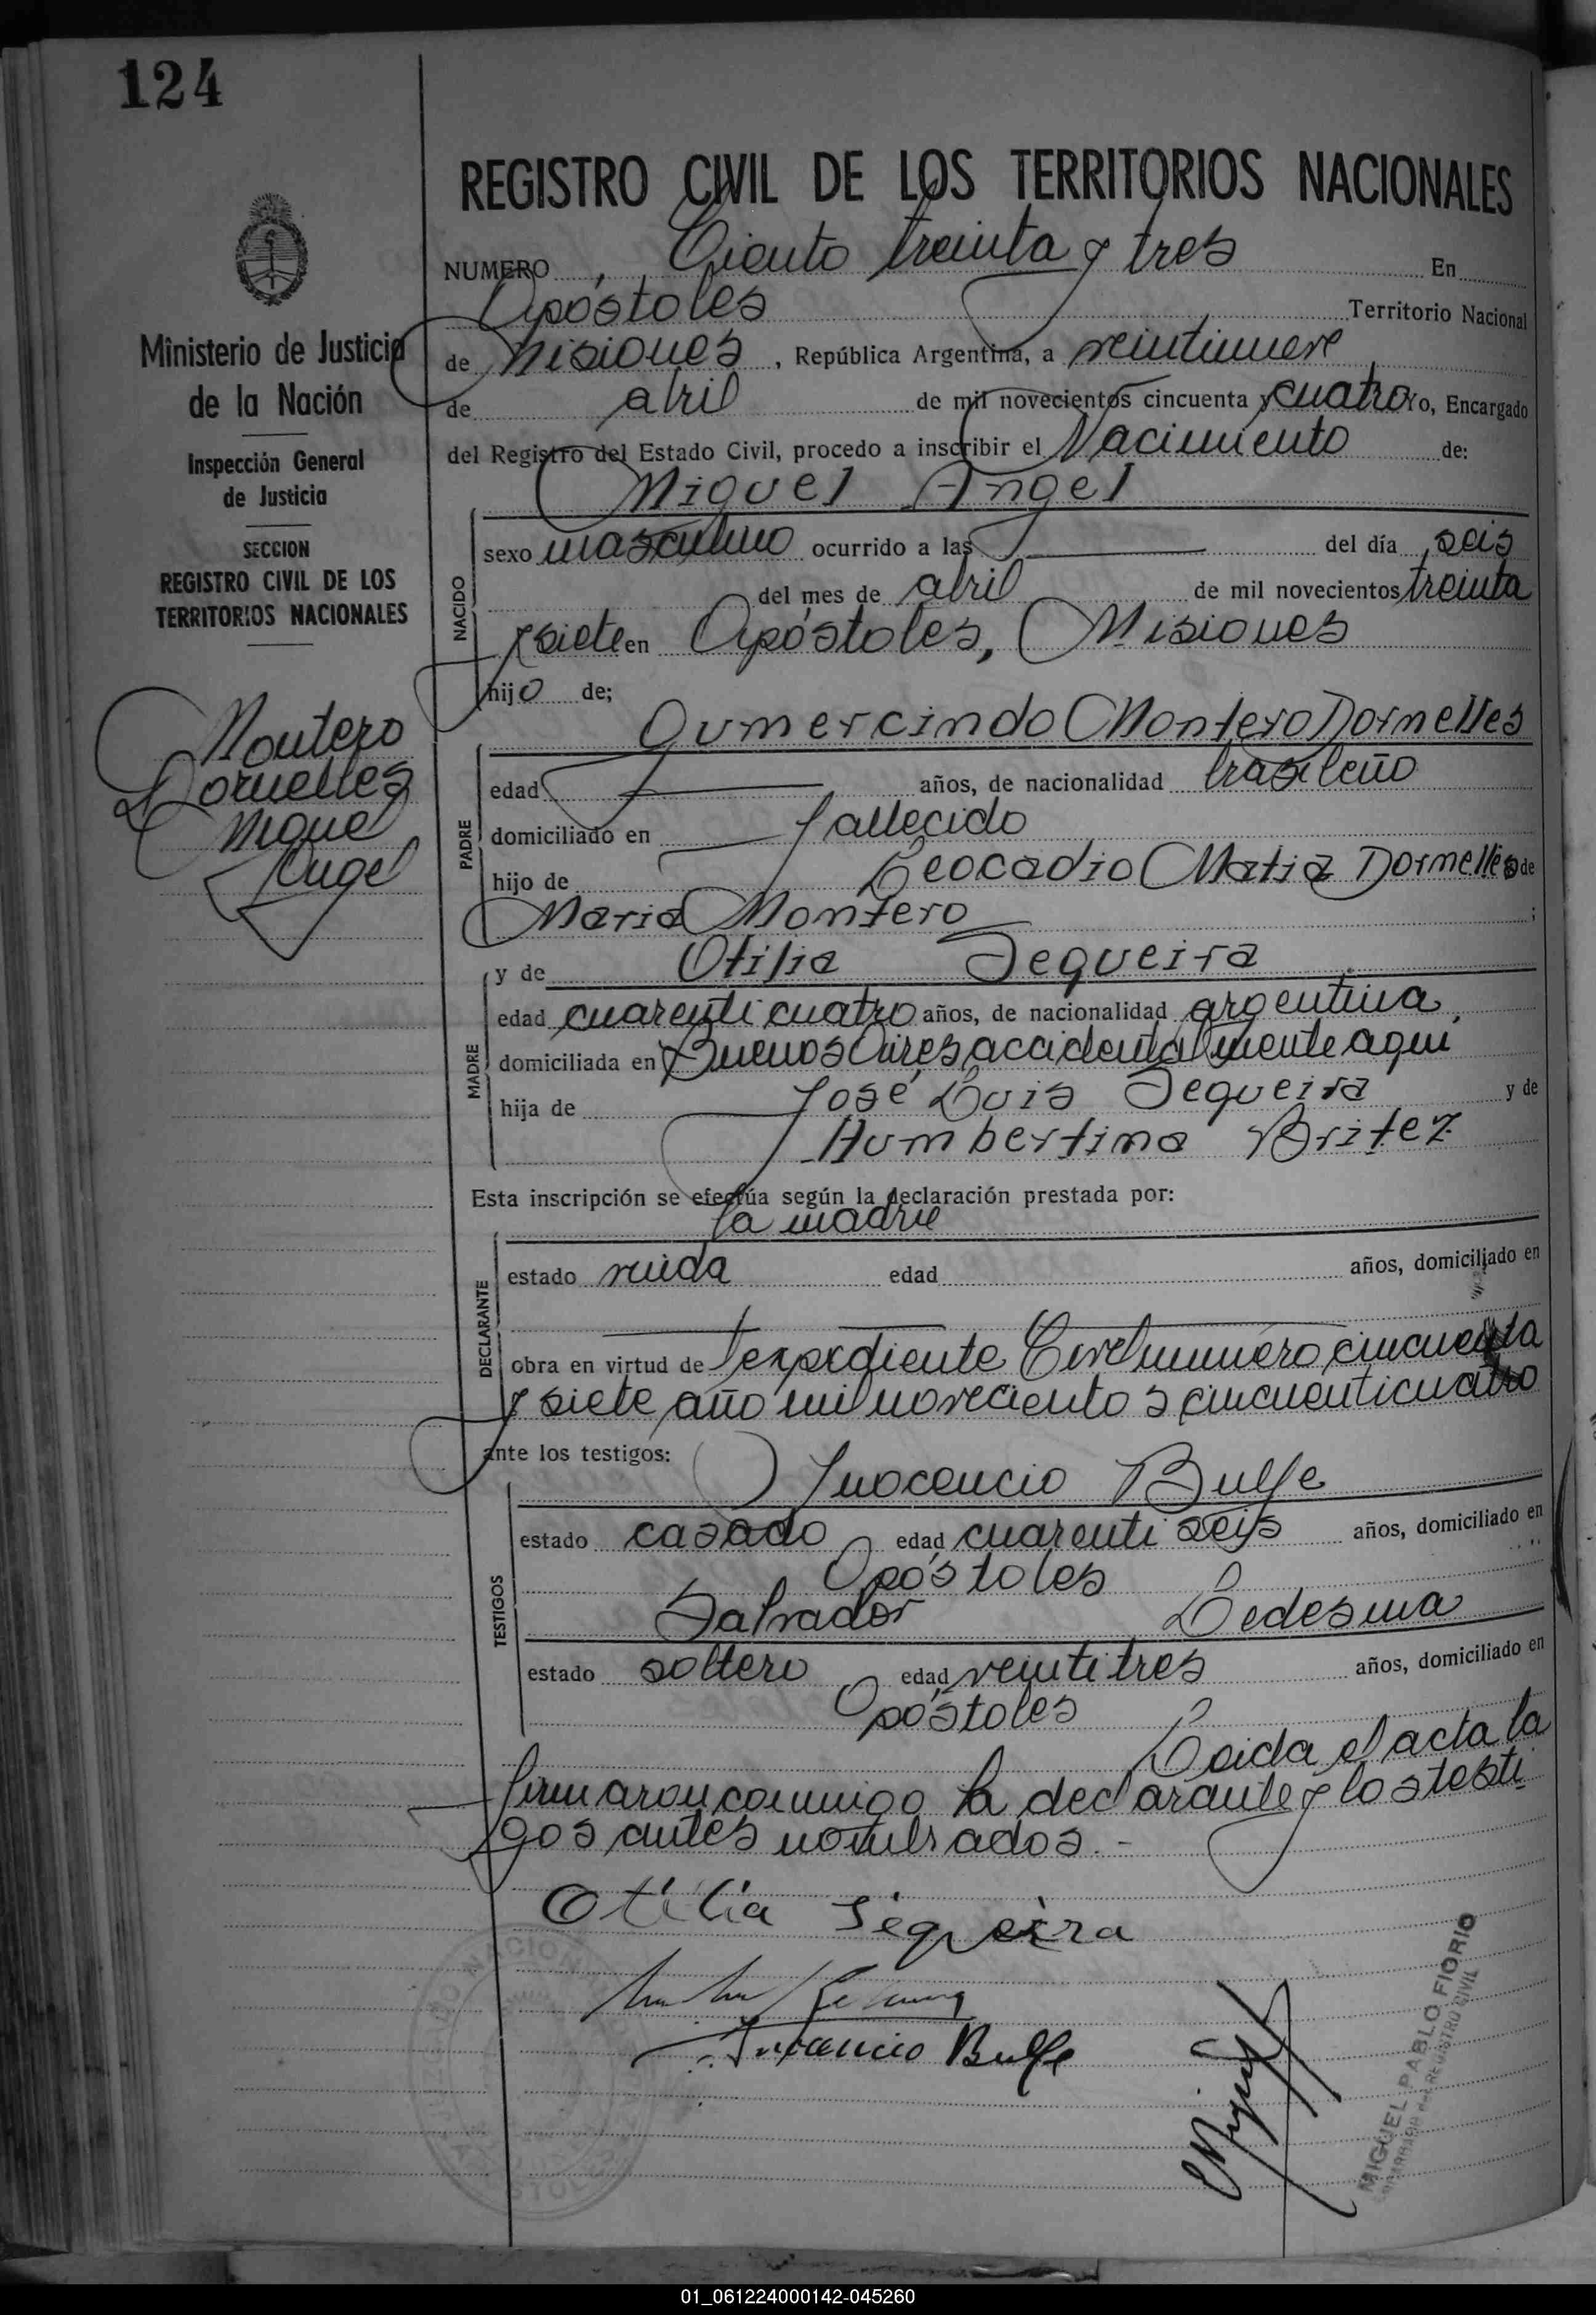 124
REGISTRO CIVIL DE LOS TERRITORIOS NACIONALES
NUMERO Ciento treinta y tres En
Apóstoles Territorio Nacional
de Misiones, República Argentina, a veintinueve
de abril de mil novecientos cincuenta y cuatro Yo, Encargado
del Registro del Estado Civil, procedo a inscribir el Nacimiento de:
Miguel Angel
NACIDO
sexo masculino ocurrido a las del día seis
del mes de abril de mil novecientos treinta
y siete en Apóstoles, Misiones
hijo de;
Gumercindo Montero Dornelles
PADRE
edad años, de nacionalidad brasileño
domiciliado en fallecido
hijo de Leocadio Matia Dornelles de
Maria Montero ;
y de Otilia Sequeira
MADRE
edad cuarenticuatro años, de nacionalidad argentina,
domiciliada en Buenos Aires, accidentalmente aqui
hija de José Luis Sequeira y de
Humbertina Britez
Esta inscripción se efectúa según la declaración prestada por:
la madre
DECLARANTE
estado viuda edad años, domiciliado en
obra en virtud de expediente Civil número cincuenta
y siete año mil novecientos cincuenticuatro
ante los testigos:
Inocencio Bulfe
TESTIGOS
estado casado edad cuarentiseis años, domiciliado en
Apóstoles
Salvador Ledesma
estado soltero edad veintitres años, domiciliado en
Apóstoles
Leida el acta la
firmaron conmigo la declarante y los testi
gos antes nombrados.-
Otilia Sequeira
Inocencio Bulfe
MIGUEL PABLO FIORIO
ENCARGADO del REGISTRO CIVIL
Ministerio de Justicia
de la Nación
Inspección General
de Justicia
SECCION
REGISTRO CIVIL DE LOS
TERRITORIOS NACIONALES
Montero
Dornelles
Miguel
Angel
01_061224000142-045260